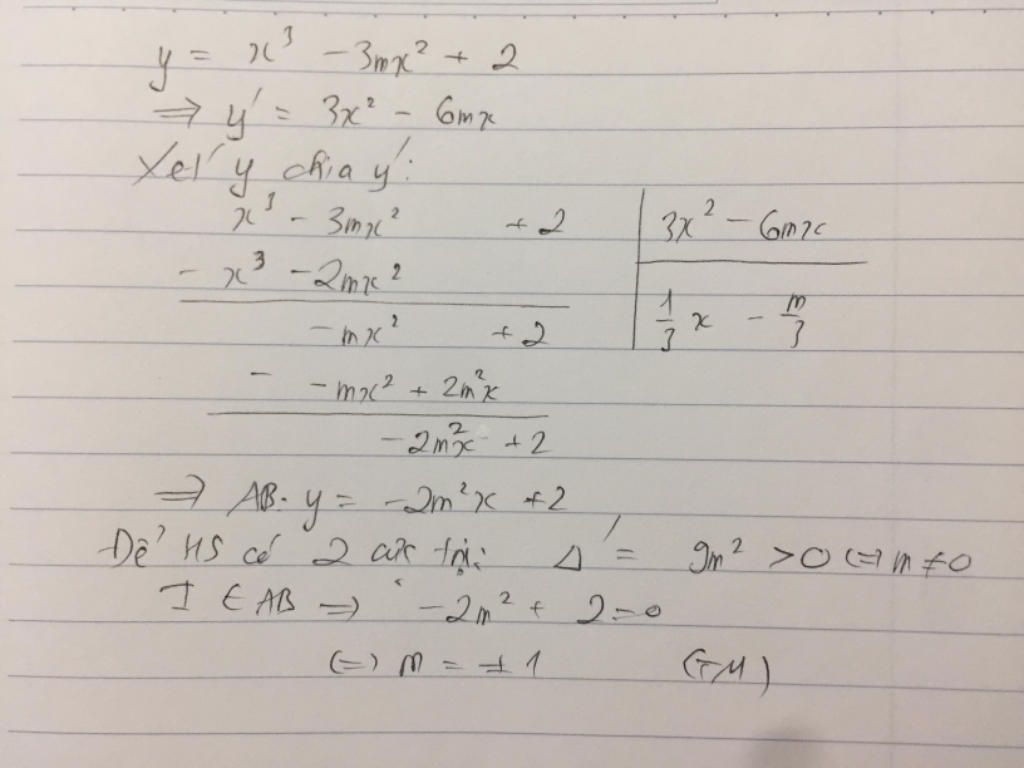 y = x³ - 3mx² + 2
⇒ y' = 3x² - 6mx
Xét y chia y':
x³ - 3mx² + 2 | 3x² - 6mx
- x³ - 2mx²
- mx² + 2 | 1/3 x - m/3
- - mx² + 2m²x
- 2m²x + 2
⇒ AB: y = -2m²x + 2
Để HS có 2 cực trị: Δ' = 9m² > 0 ⇔ m ≠ 0
I ∈ AB ⇒ -2m² + 2 = 0
⇔ m = ±1 (TM)